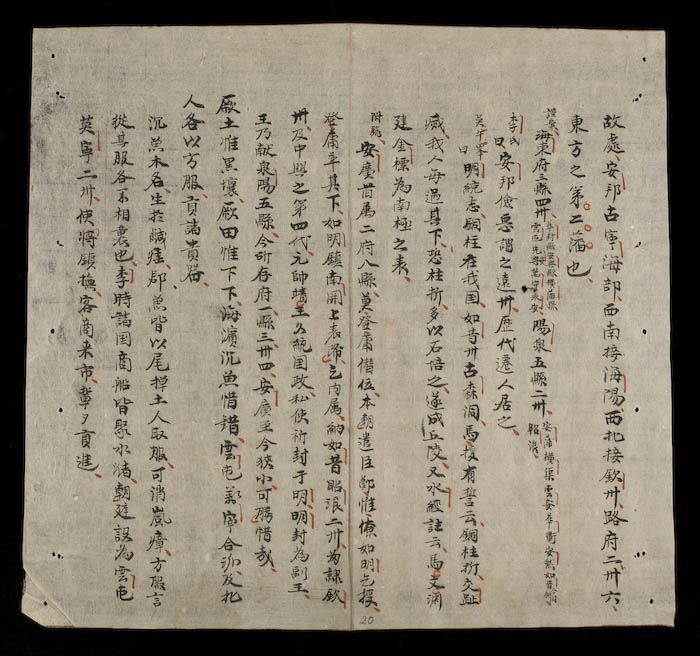 故處安邦古寧海部西南接海陽西北接欽州路府二州六
東方之第二藩也
謹按海東府三縣四州 陽泉五縣二州
李氏曰安邦儉惡謂之遠州歷代遷人居之
吳午峯曰明統志銅柱在我国如昔州古森洞馬援有誓云銅柱折交趾
滅我人每過其下恐柱折多以石培之遂成丘陵又水經註云馬文淵
建金標為南極之表
附論安廣昔属二府八縣莫登庸僭位本朝遣臣鄭惟僚如明乞援
登庸率其下如明鎮南開上表 乞内属納如昔昭浪二州为隸欽
州及中興之第四代元帥靖王久統囯政私使祈封于明明封為副王
王乃献泉陽五縣今所存府一縣三州四安廣至今狹小可勝惜哉
厥土惟黑壤厥田惟下下海濱沉魚惜錯雲屯萬寧合 及北
人各以方服貢諸貴路
沉魚木名生於鹹 郡魚皆以尾掉土人取服可消嵐瘴方服言
從其服各不相襲也李時諸国商船皆聚水 朝廷設為雲屯
萬寧二州使將鎮撫客商来市 貢進
20